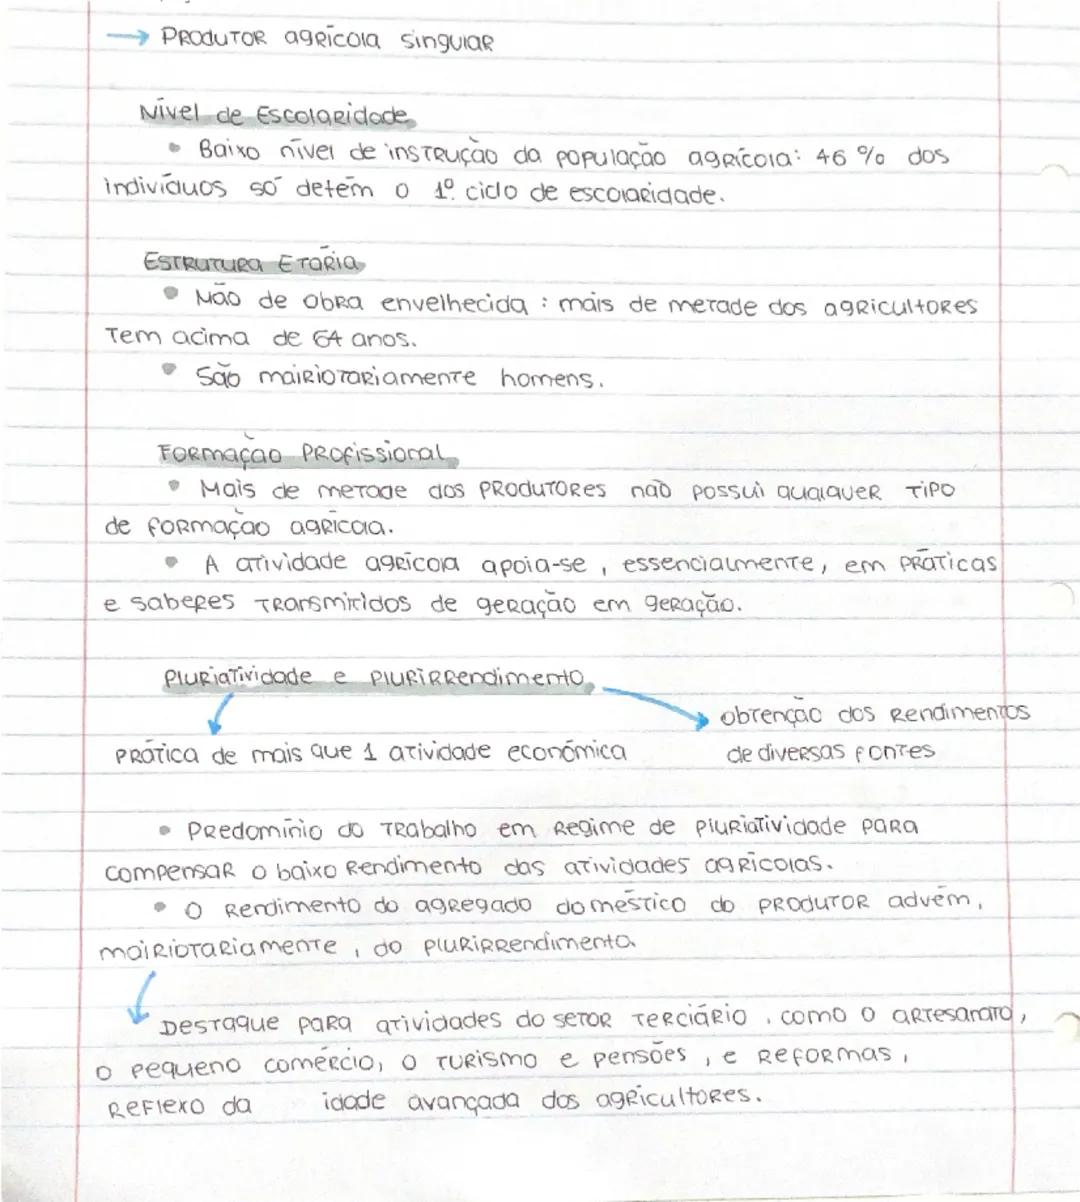 → Produtor agrícola singular
Nível de Escolaridade
• Baixo nível de instrução da população agrícola: 46 % dos
indivíduos só detêm o 1º ciclo de escolaridade.
Estrutura Etária
• Mão de obra envelhecida : mais de metade dos agricultores
Tem acima de 64 anos.
• São mairiotariamente homens.
Formação Profissional
• Mais de metade dos produtores não possui qualquer tipo
de formação agrícola.
• A atividade agrícola apoia-se , essencialmente, em práticas
e saberes transmitidos de geração em geração.
Pluriatividade e plurirrendimento
obtenção dos rendimentos
Prática de mais que 1 atividade económica
de diversas fontes
• Predomínio do trabalho em regime de pluriatividade para
compensar o baixo rendimento das atividades agrícolas.
• O rendimento do agregado doméstico do produtor advém,
mairiotariamente , do plurirrendimento.
Destaque para atividades do setor terciário , como o artesanato,
o pequeno comércio, o turismo e pensões , e reformas ,
reflexo da idade avançada dos agricultores.